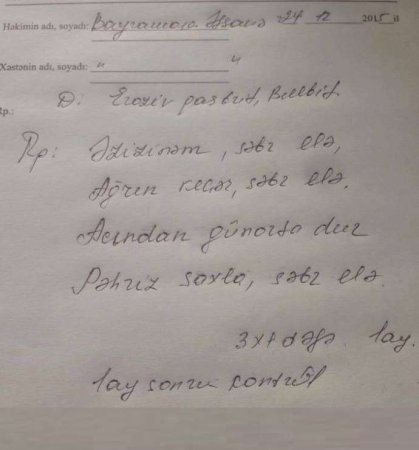 Həkimin adı, soyadı: Bayramova Əsanə 24 12 2015 il
Xəstənin adı, soyadı: " "
Rp.:
D: Eroziv qastrit, Bulbit.
Rp: Əzizinəm, səbr elə,
Ağrın keçər, səbr elə.
Acından günorta dur
Pəhriz saxla, səbr elə.
3x1 dəfə. 1ay.
1ay sonra kontrol